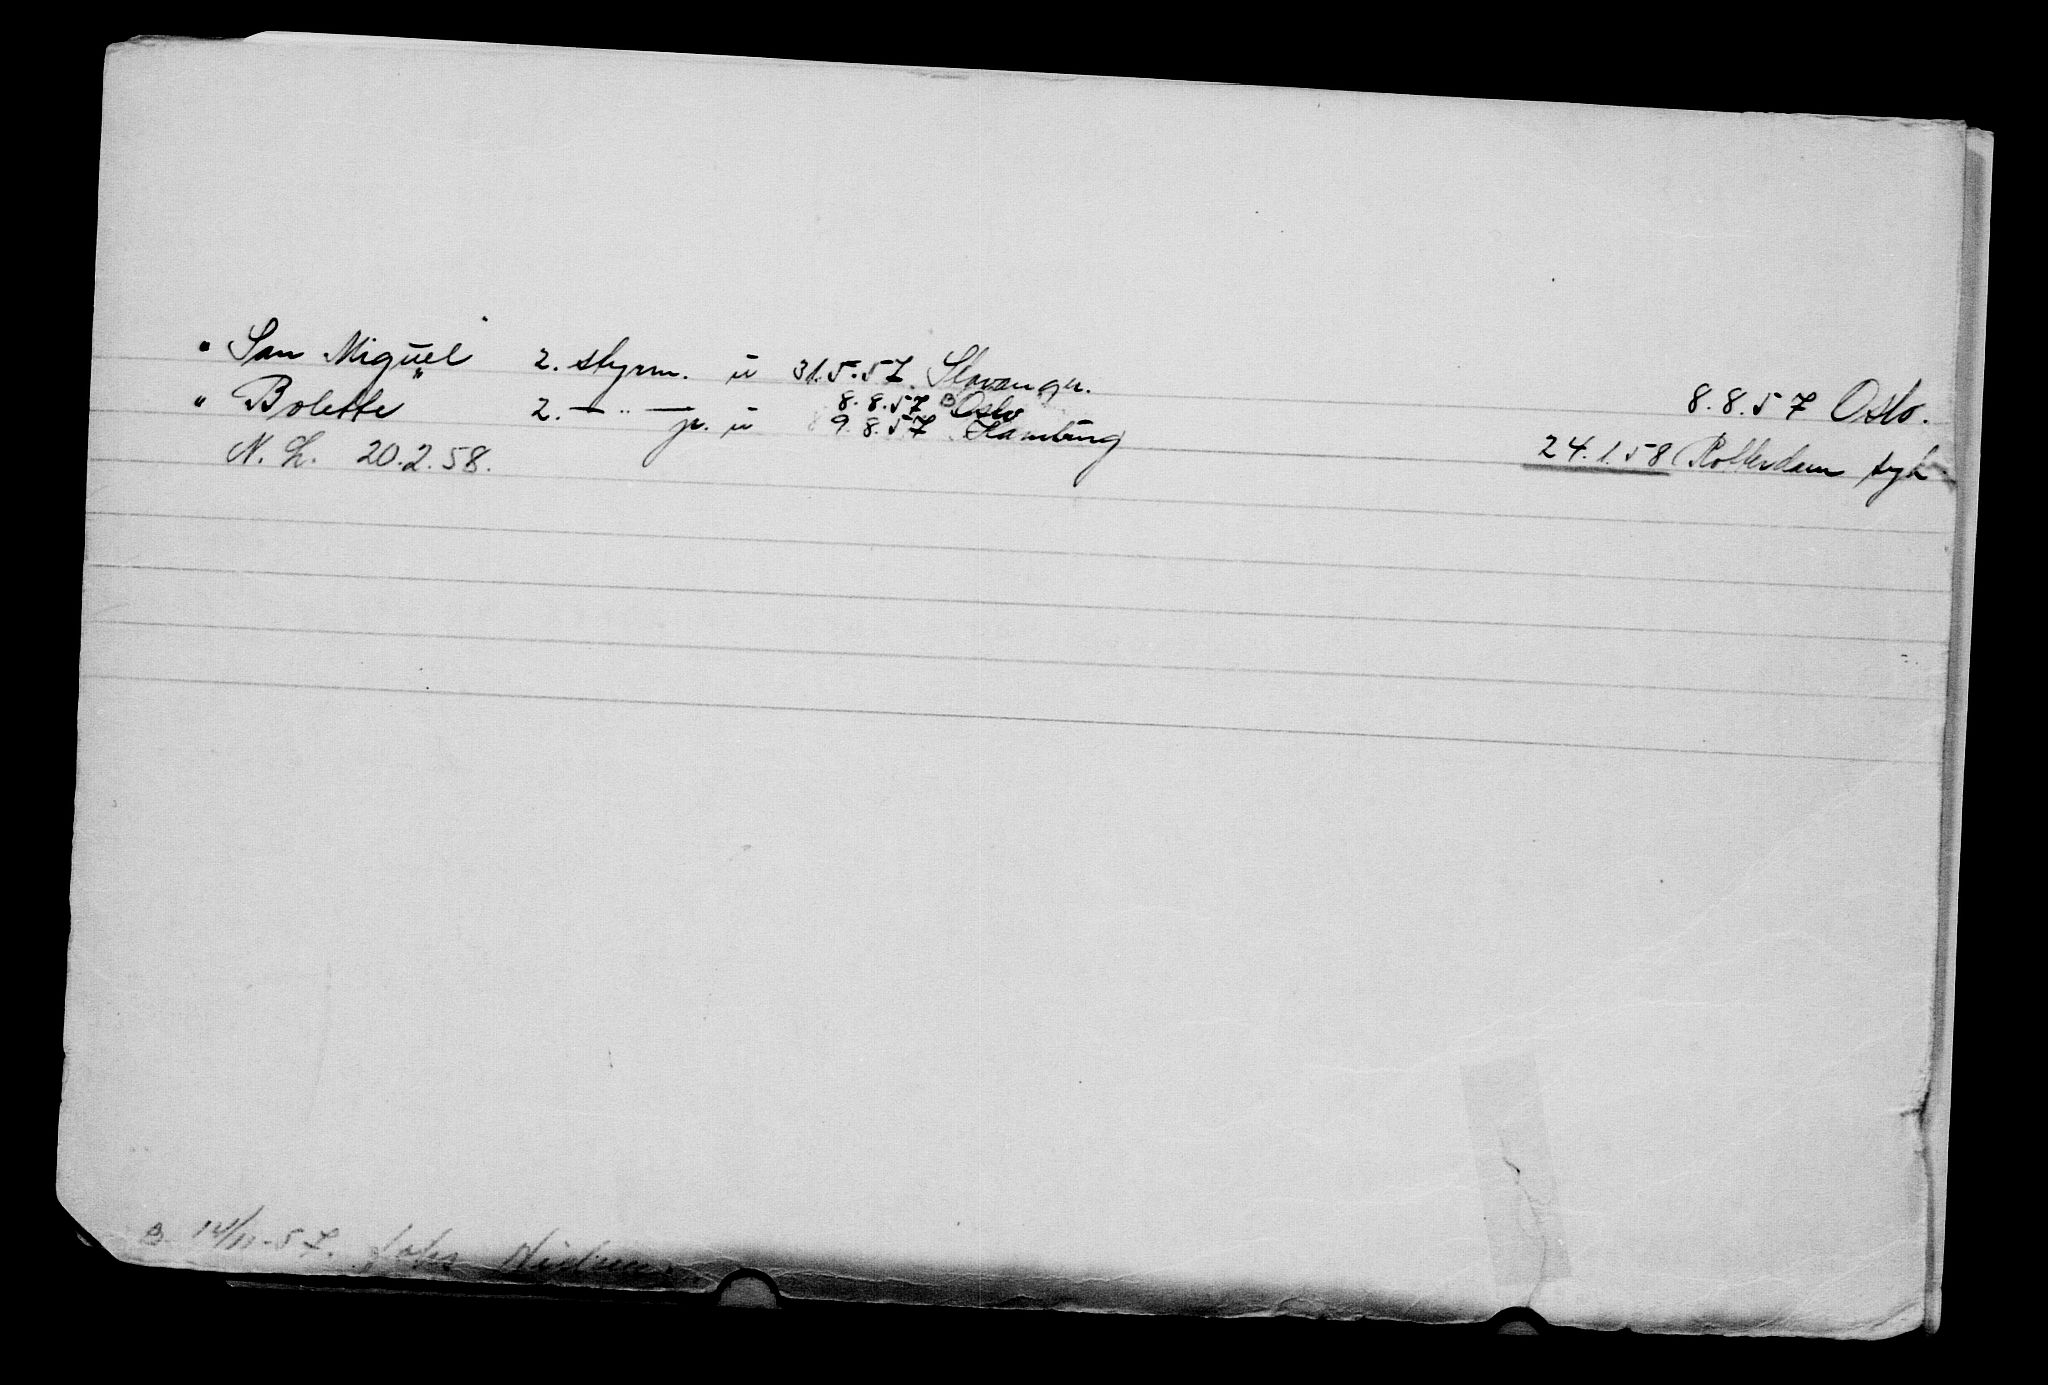 " San Miguel " 2. styrm. u 31.5.57. Stavanger. 8.8.57 Oslo.
8.8.57 Oslo
" Bolette " 2. — " — jr. u 9.8.57 Hamburg 24.1.58 Rotterdam syk.
N. L. 20.2.58.
B 14/11-57. Johs Nielsen.